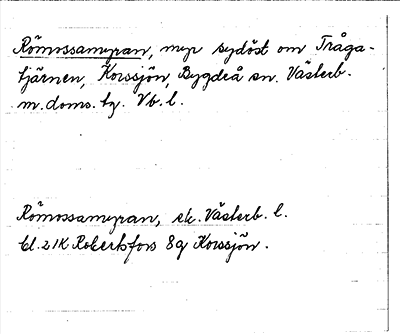 Römossamyran, myr sydöst om Tråga-
tjärnen, Korssjön, Bygdeå sn. Västerb.
m. doms. tg. Vb. l.
Römossamyran, ek. Västerb. l.
bl. 21K Robertsfors 8g Korssjön.